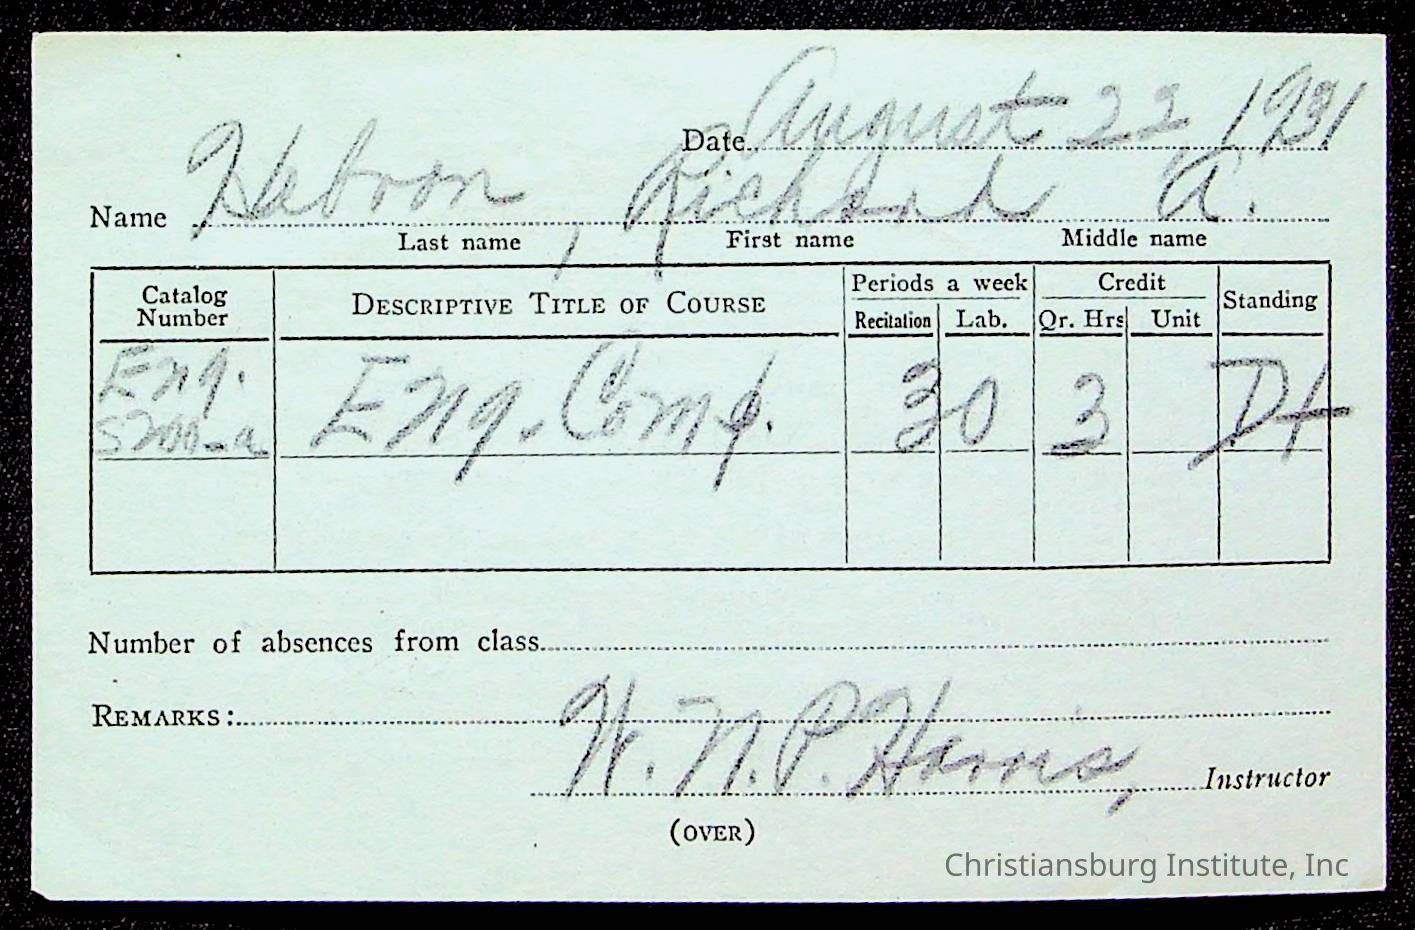 Date August 22 1931
Name Hebron, Richard A.
Last name First name Middle name
Catalog Number DESCRIPTIVE TITLE OF COURSE Periods a week Credit Standing
Recitation Lab. Qr. Hrs Unit
Eng. Eng. Comp. 3 0 3 D+
Number of absences from class
REMARKS:
W. N. P. Harris, Instructor
(OVER)
Christiansburg Institute, Inc